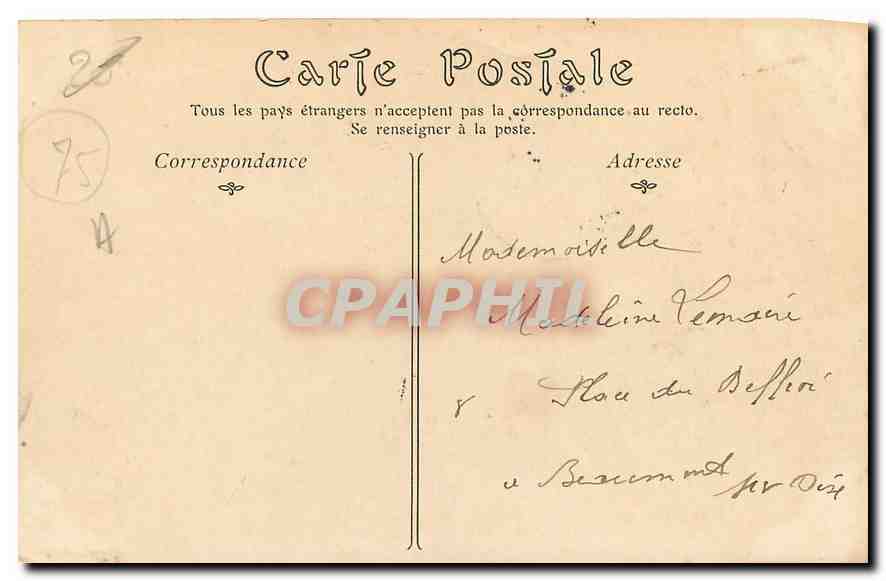 Carte Postale
Tous les pays étrangers n'acceptent pas la correspondance au recto.
Se renseigner à la poste.
75
Correspondance
Adresse
Mademoiselle
CPAPHIL
Madeleine Lemaire
8 Place du Beffroi
a Beaumont sur Oise